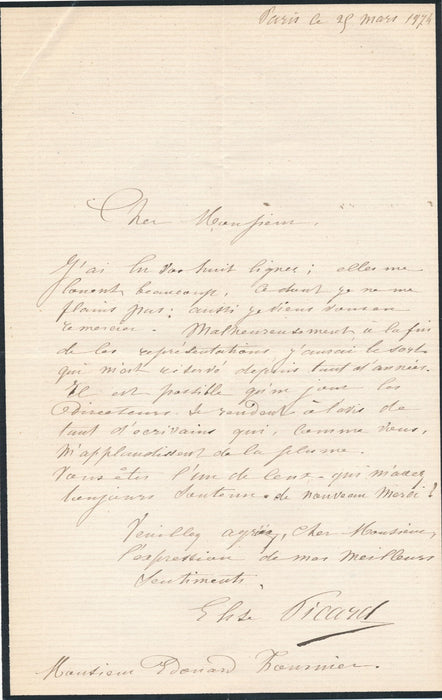 Paris le 25 mars 1874
Cher Monsieur,
J'ai lu vos huit lignes; elles me
louent beaucoup, ce dont je ne me
plains pas: aussi je viens vous en
remercier. Malheureusement à la fin
de les représentations, j'aurai le sort
qui m'est réservé depuis tant d'années.
Il est possible qu'un jour les
Directeurs se rendent à l'avis de
tant d'écrivains qui, comme vous,
m'applaudissent de la plume.
Vous êtes l'un de ceux qui m'avez
toujours soutenue. de nouveau merci!
Veuillez agréer, cher Monsieur,
l'expression de mes meilleurs
sentiments.
Elise Picard
Monsieur Edouard Fournier.